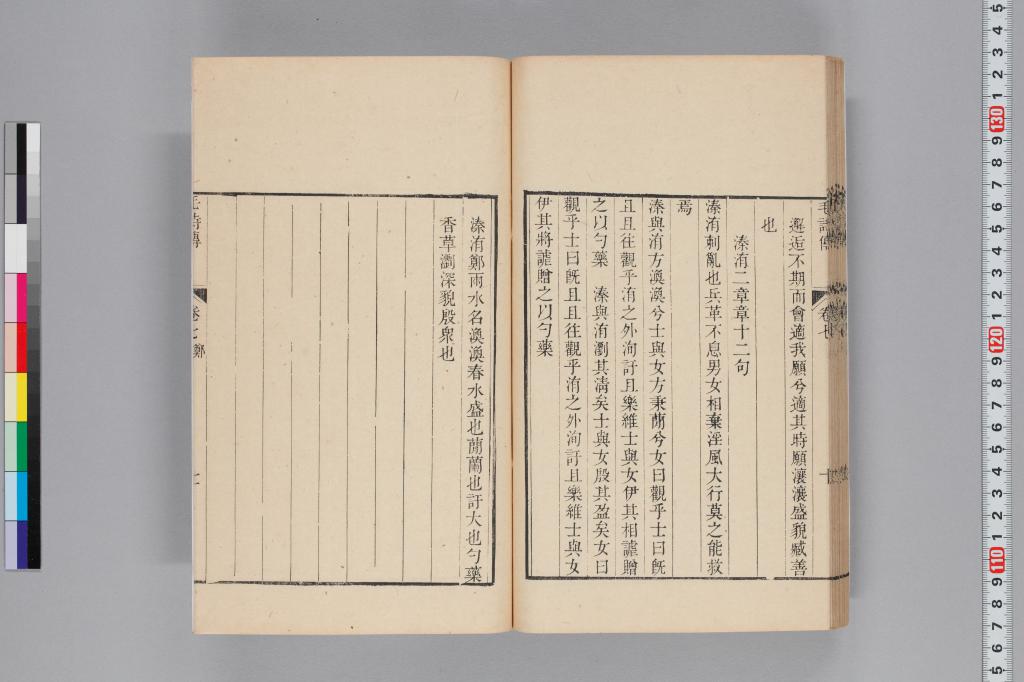 毛詩傳 卷七 十
邂逅不期而會適我願兮適其時願瀼瀼盛貌臧善
也
溱洧二章章十二句
溱洧刺亂也兵革不息男女相棄淫風大行莫之能救
焉
溱與洧方渙渙兮士與女方秉蕑兮女曰觀乎士曰旣
且且往觀乎洧之外洵訏且樂維士與女伊其相謔贈
之以勺藥 溱與洧瀏其淸矣士與女殷其盈矣女曰
觀乎士曰旣且且往觀乎洧之外洵訏且樂維士與女
伊其將謔贈之以勺藥
溱洧鄭兩水名渙渙春水盛也蕑蘭也訏大也勺藥
香草瀏深貌殷衆也
毛詩傳 卷七 鄭
130
120
110